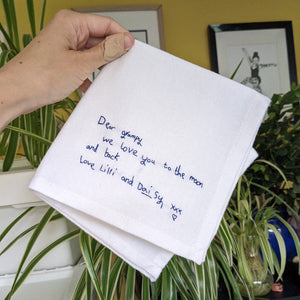 Dear grampy
we love you to the moon
and back
Love Lilli and Daisy xxx